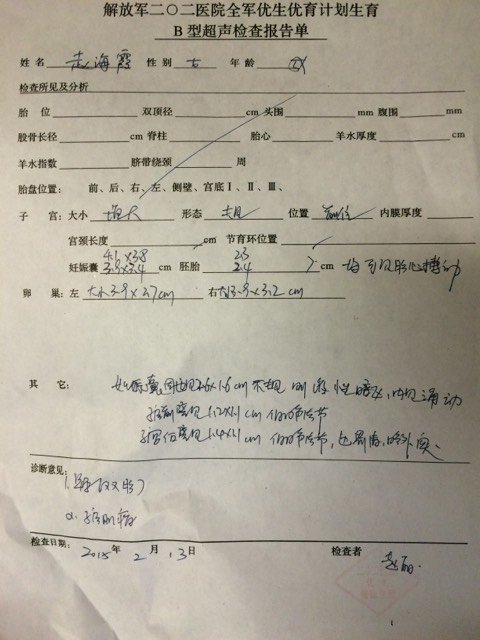 解放军二〇二医院全军优生优育计划生育
B 型超声检查报告单
姓 名 赵海霞 性 别 女 年 龄
检查所见及分析
胎 位 双顶径 cm 头围 mm 腹围 mm
股骨长径 cm 脊柱 胎心 羊水厚度 cm
羊水指数 脐带绕颈 周
胎盘位置: 前、后、右、左、侧壁、宫底Ⅰ、Ⅱ、Ⅲ、
子 宫: 大小 增大 形态 规 位置 前位 内膜厚度
宫颈长度 cm 节育环位置
4.1×3.8 2.3
妊娠囊 3.9×3.4 cm 胚胎 2.4 cm 均可见胎心搏动
卵 巢: 左 大小3.9×2.7cm 右 大小3.9×3.2 cm
其 它: 妊娠囊周见2.6×1.6cm 不规则液性暗区,内见涌动
子宫前壁见1.2×1.1 cm 低回声结节
子宫后壁见1.4×1.1 cm 低回声结节,边界清
诊断意见:
1.早孕(双胎)
2.子宫肌瘤
检查日期: 2015年 2 月 13日 检查者